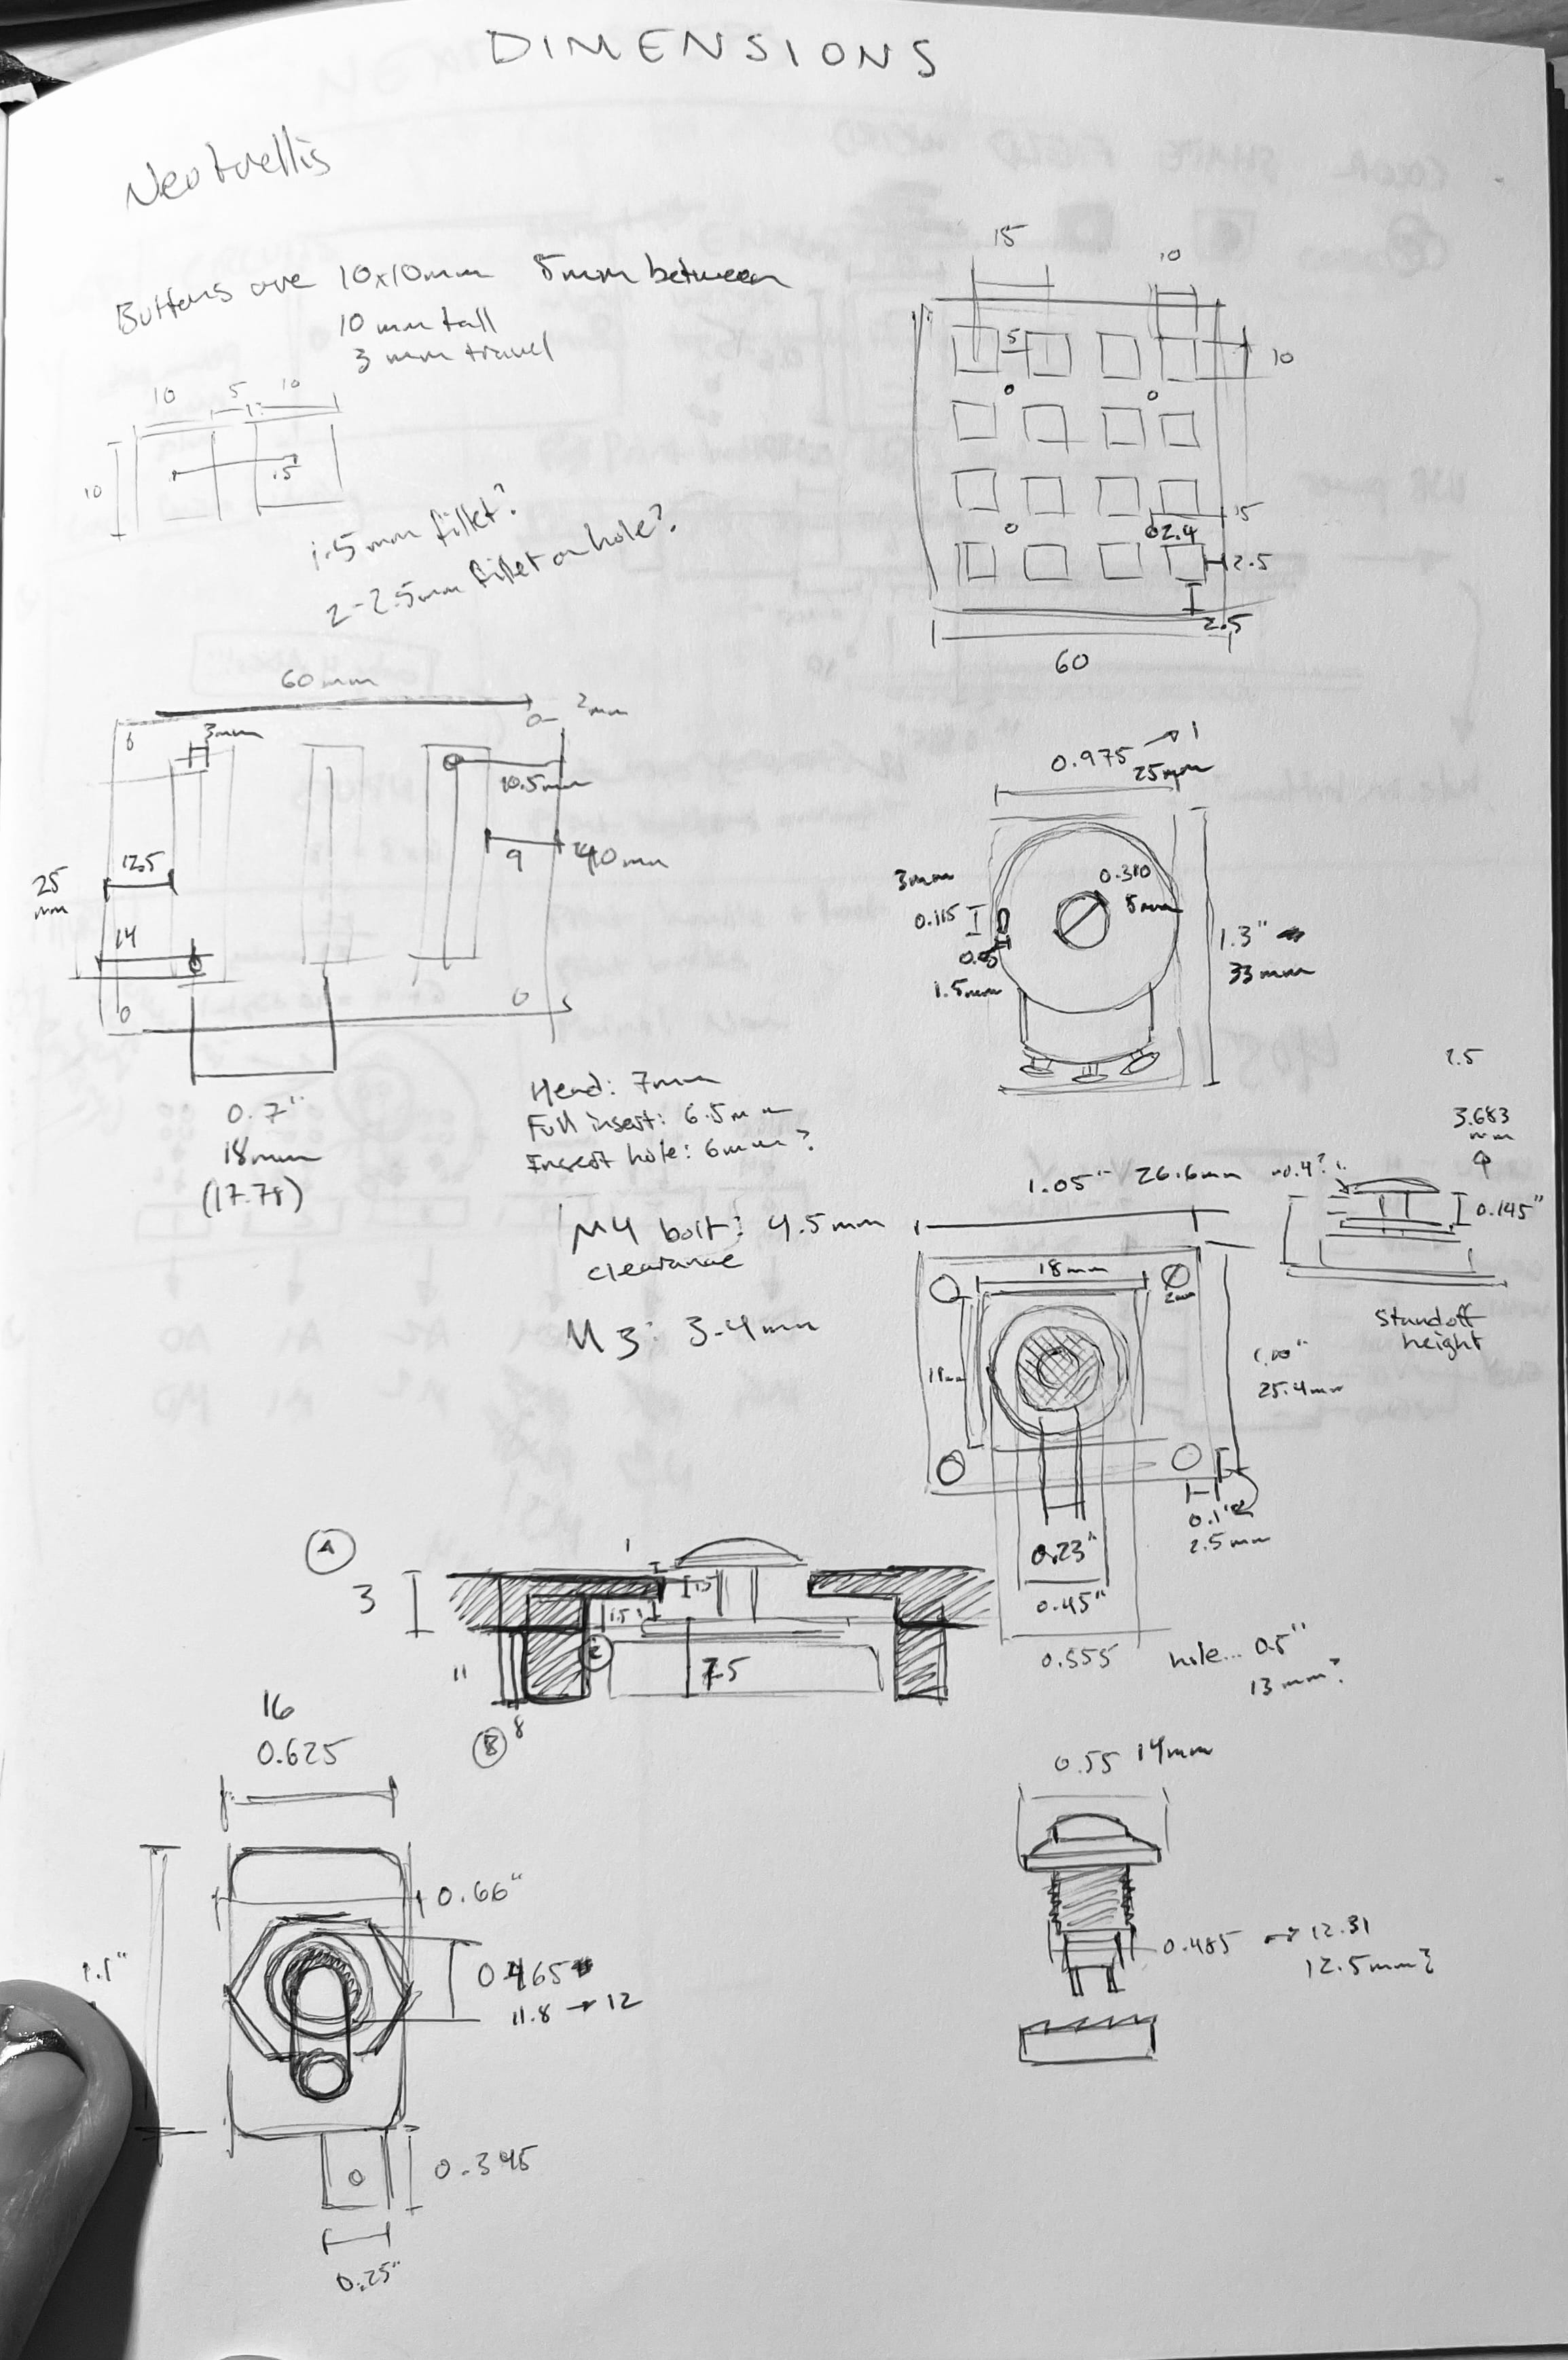 DIMENSIONS
Neotrellis
Buttons are 10x10mm 5mm between
10 mm tall
3 mm travel
10 5 10
10
15
1.5mm fillet?
2-2.5mm fillet on hole?
15
10
5
10
15
2.4
2.5
2.5
60
60mm
2mm
3mm
10.5mm
9
40mm
12.5
25
mm
14
0.7"
18mm
(17.78)
0.975 → 1
25mm
3mm
0.115
0.310
8mm
1.5mm
1.3"
33mm
Head: 7mm
Full insert: 6.5mm
Insert hole: 6mm?
M4 bolt: 4.5mm
clearance
M3: 3.4mm
2.5
3.683
mm
1.05" 26.6mm
0.145"
standoff
height
18mm
2mm
18mm
1.00"
25.4mm
0.1"
2.5mm
0.23"
0.45"
0.555
hole... 0.5"
13mm?
A
3
1
1.5
1.5
2
7.5
11
8
B
16
0.625
0.66"
1.1"
0.465
11.8 → 12
0.395
0.25"
0.55 14mm
0.485 → 12.31
12.5mm?